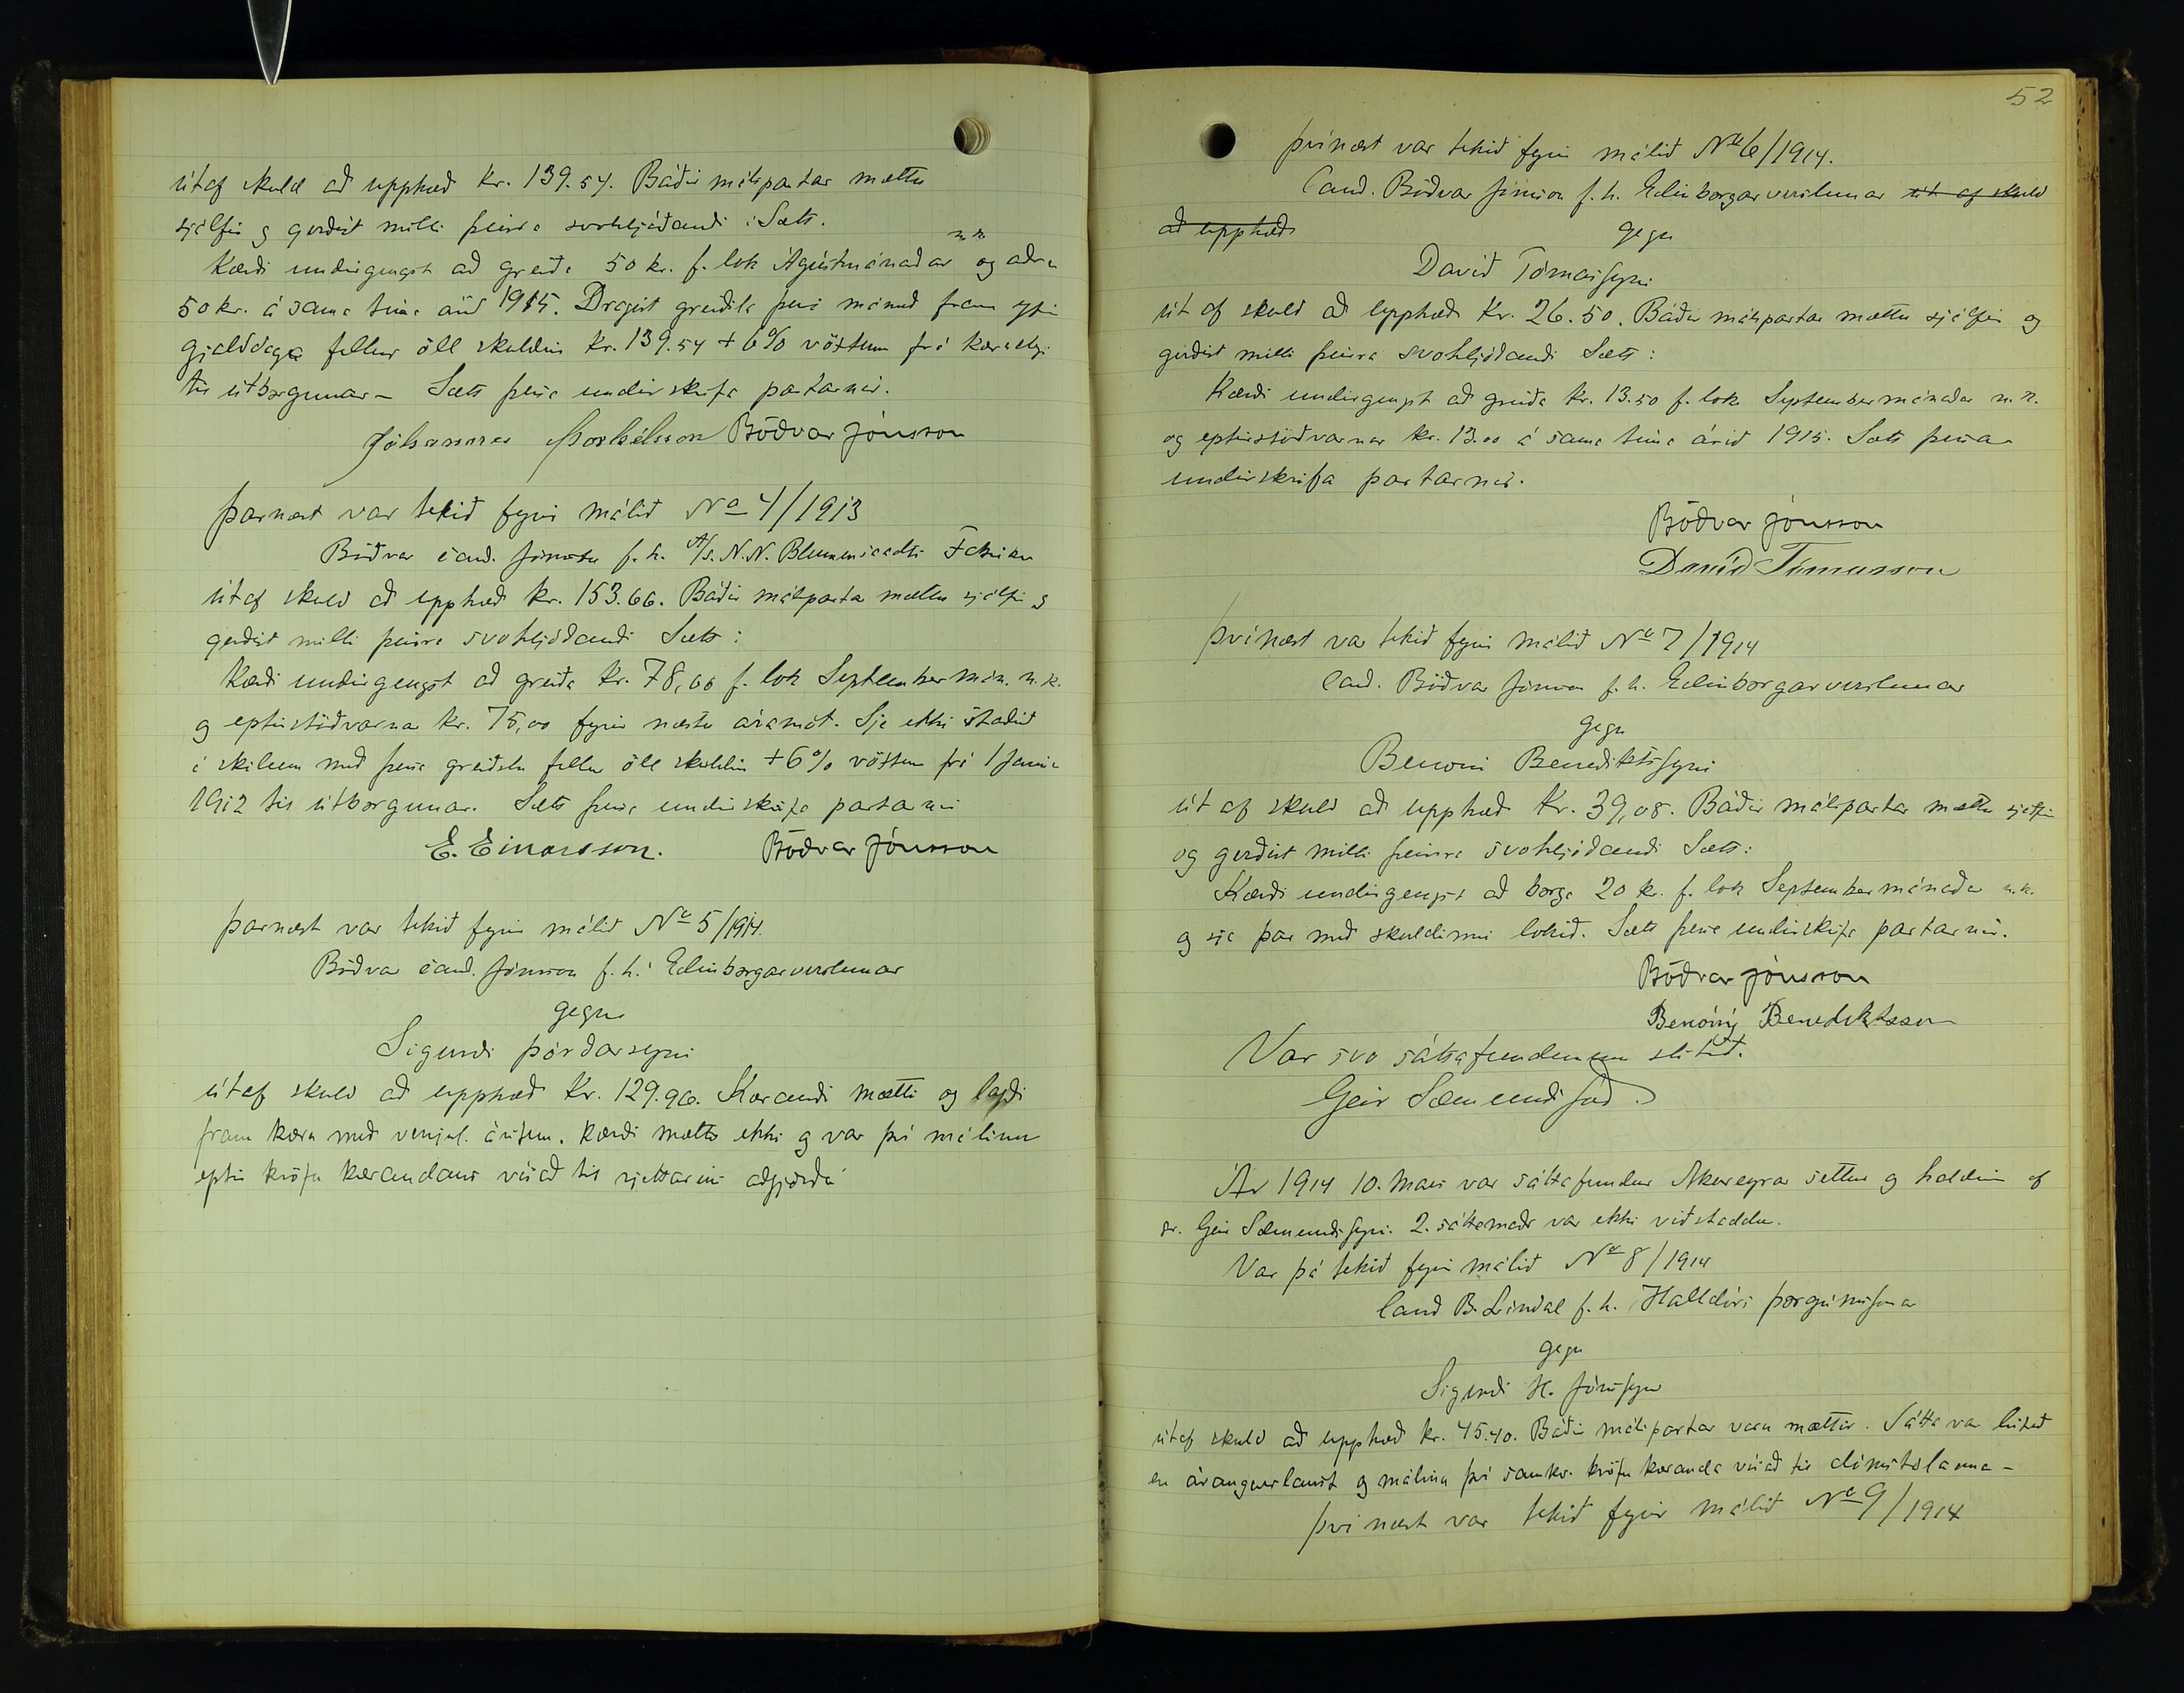 útaf skuld að upphæð kr. 139.54. Báðir málspartar mættu
sjálfir og gerðist milli þeirra svohljóðandi Sætt.
Kærði undirgengst að greiða 50 kr. f. lok Ágústmánaðar n.k. og aðra
50 kr. á sama tíma árið 1915. Dragist greiðsla þessi mánuð fram yfir
gjalddaga fellur öll skuldin kr. 139.54 + 6% vöxtum frá kærudegi
til útborgunar – Sætt þessa undirskrifa partarnir.
Jóhannes Þorkelsson Böðvar Jónsson
Þarnæst var tekið fyrir málið No 4/1913
Böðvar cand. Jónsson f.h. A/S. N.N. Blumensaadts Fabriker
útaf skuld að upphæð kr. 153.66. Báðir málspartar mættu sjálfir og
gerðist milli þeirra svohljóðandi Sætt:
Kærði undirgengst að greiða kr. 78,66 f. lok September mán. n.k.
og eptirstöðvarnar kr. 75,00 fyrir næstu áramót. Sje ekki staðið
í skilum með þessa greiðslu fellur öll skuldin + 6% vöxtum frá 1 Janúar
1912 til útborgunar. Sætt þessa undirskrifa partarnir
E. Einarsson. Böðvar Jónsson
Þarnæst var tekið fyrir málið No 5/1914.
Böðvar cand. Jónsson f.h. Edinborgarverslunar
gegn
Sigurði Þórðarsyni
útaf skuld að upphæð kr. 129.96. Kærandi mætti og lagði
fram kæru með venjul. áritun. Kærði mætti ekki og var því málinu
eptir kröfu kærandans vísað til rjettarins aðgjörða
52
Þvínæst var tekið fyrir málið No 6/1914.
Cand. Böðvar Jónsson f.h. Edinborgarverslunar út af skuld
að upphæð
gegn
Davíð Tómassyni
út af skuld að upphæð kr. 26.50. Báðir málspartar mættu sjálfir og
gerðist milli þeirra svohljóðandi Sætt:
Kærði undirgengst að greiða kr. 13.50 f. lok Septembermánaðar n.k.
og eptirstöðvarnar kr. 13.00 á sama tíma árið 1915. Sætt þessa
undirskrifa partarnir.
Böðvar Jónsson
Davíð Tómasson
Þvínæst var tekið fyrir málið No 7/1914
Cand. Böðvar Jónsson f.h. Edinborgarverslunar
gegn
Benoni Benediktssyni
út af skuld að upphæð kr. 39,08. Báðir málspartar mættu sjálfir
og gerðist milli þeirra svohljóðandi Sætt:
Kærði undirgengst að borga 20 kr. f. lok Septembermánaðar n.k.
og sje þar með skuldinni lokið. Sætt þessa undirskrifa partarnir.
Böðvar Jónsson
Benóný Benediktsson
Var svo sáttafundinum slitið.
Geir Sæmundsson
Ár 1914 10. Mars var sáttafundur Akureyrar settur og haldinn af
sr. Geir Sæmundssyni. 2. sáttamaðr var ekki viðstaddur.
Var þá tekið fyrir málið No 8/1914
Cand B. Líndal f.h. Halldórs Þorgrímssonar
gegn
Sigurði H. Jónssyni
útaf skuld að upphæð kr. 45.40. Báðir málspartar voru mættir. Sátta var leitað
en árangurslaust og málinu því samkv. kröfu kæranda vísað til dómstólanna –
Því næst var tekið fyrir málið No 9/1914